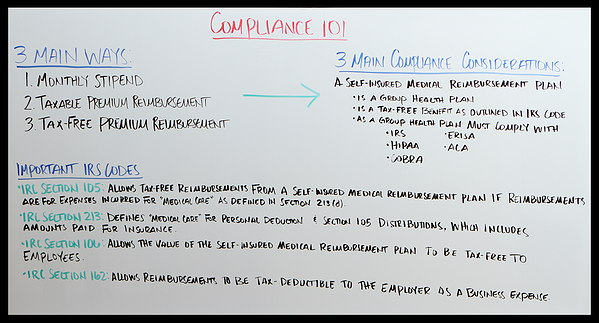 COMPLIANCE 101
3 MAIN WAYS:
1. MONTHLY STIPEND
2. TAXABLE PREMIUM REIMBURSEMENT
3. TAX-FREE PREMIUM REIMBURSEMENT
3 MAIN COMPLIANCE CONSIDERATIONS:
A SELF-INSURED MEDICAL REIMBURSEMENT PLAN
• IS A GROUP HEALTH PLAN
• IS A TAX-FREE BENEFIT AS OUTLINED IN IRS CODE
• AS A GROUP HEALTH PLAN MUST COMPLY WITH
• IRS • ERISA
• HIPAA • ACA
• COBRA
IMPORTANT IRS CODES
• IRC SECTION 105: ALLOWS TAX-FREE REIMBURSEMENTS FROM A SELF-INSURED MEDICAL REIMBURSEMENT PLAN IF REIMBURSEMENTS
ARE FOR EXPENSES INCURRED FOR "MEDICAL CARE" AS DEFINED IN SECTION 213(d).
• IRC SECTION 213: DEFINES "MEDICAL CARE" FOR PERSONAL DEDUCTION & SECTION 105 DISTRIBUTIONS, WHICH INCLUDES
AMOUNTS PAID FOR INSURANCE.
• IRC SECTION 106: ALLOWS THE VALUE OF THE SELF-INSURED MEDICAL REIMBURSEMENT PLAN TO BE TAX-FREE TO
EMPLOYEES.
• IRC SECTION 162: ALLOWS REIMBURSEMENTS TO BE TAX-DEDUCTIBLE TO THE EMPLOYER AS A BUSINESS EXPENSE.